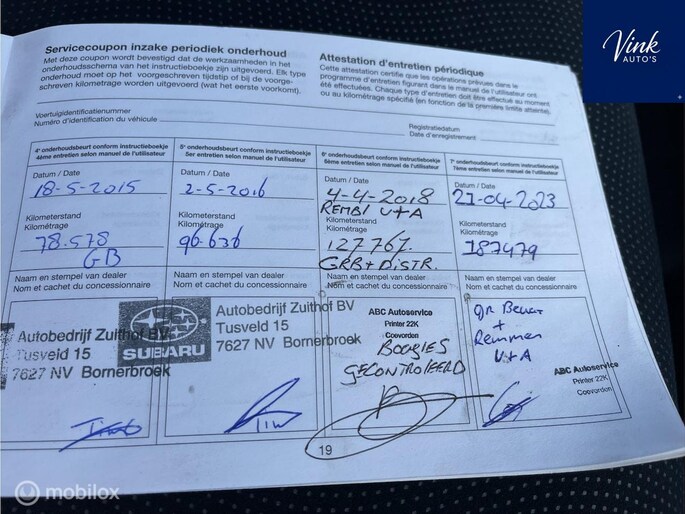 Vink
AUTO'S
Servicecoupon inzake periodiek onderhoud
Met deze coupon wordt bevestigd dat de werkzaamheden in het
onderhoudsschema van het instructieboekje zijn uitgevoerd. Elk type
onderhoud moet op het voorgeschreven tijdstip of bij de voorge-
schreven kilometrage worden uitgevoerd (wat het eerste voorkomt).
Attestation d'entretien périodique
Cette attestation certifie que les opérations prévues dans le
programme d'entretien figurant dans le manuel de l'utilisateur ont
été effectuées. Chaque type d'entretien doit être effectué au moment
ou au kilométrage spécifié (en fonction de la première limite atteinte).
Voertuigidentificatienummer
Numéro d'identification du véhicule
Registratiedatum
Date d'enregistrement
4e onderhoudsbeurt conform instructieboekje
4ème entretien selon manuel de l'utilisateur
Datum / Date
18-5-2015
Kilometerstand
Kilométrage
78.578
GB
Naam en stempel van dealer
Nom et cachet du concessionnaire
Autobedrijf Zuithof BV
Tusveld 15
7627 NV Bornerbroek
5e onderhoudsbeurt conform instructieboekje
5er entretien selon manuel de l'utilisateur
Datum / Date
2-5-2016
Kilometerstand
Kilométrage
96.636
Naam en stempel van dealer
Nom et cachet du concessionnaire
SUBARU
Autobedrijf Zuithof BV
Tusveld 15
7627 NV Bornerbroek
6e onderhoudsbeurt conform instructieboekje
6ème entretien selon manuel de l'utilisateur
Datum / Date
4-4-2018
REMBL V+A
Kilometerstand
Kilométrage
127761
GRB+DISTR.
Naam en stempel van dealer
Nom et cachet du concessionnaire
ABC Autoservice
Printer 22K
Coevorden
BOUGIES
GECONTROLEERD
7e onderhoudsbeurt conform instructieboekje
7ème entretien selon manuel de l'utilisateur
Datum / Date
21-04-2023
Kilometerstand
Kilométrage
187479
Naam en stempel van dealer
Nom et cachet du concessionnaire
gr Beurt
+
Remmen
V+A
ABC Autoservice
Printer 22K
Coevorden
19
mobilox